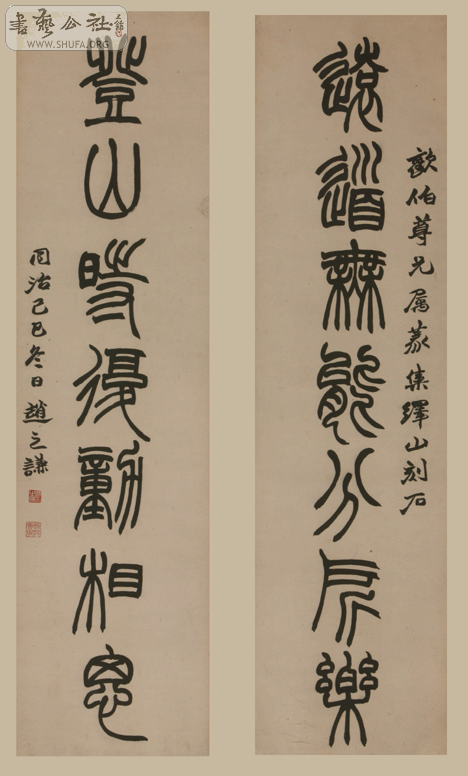 書藝公社
WWW.SHUFA.ORG
伯尊兄屬篆集繹山刻石
遠道無能分所樂
登山時復動相思
同治己巳冬日趙之謙